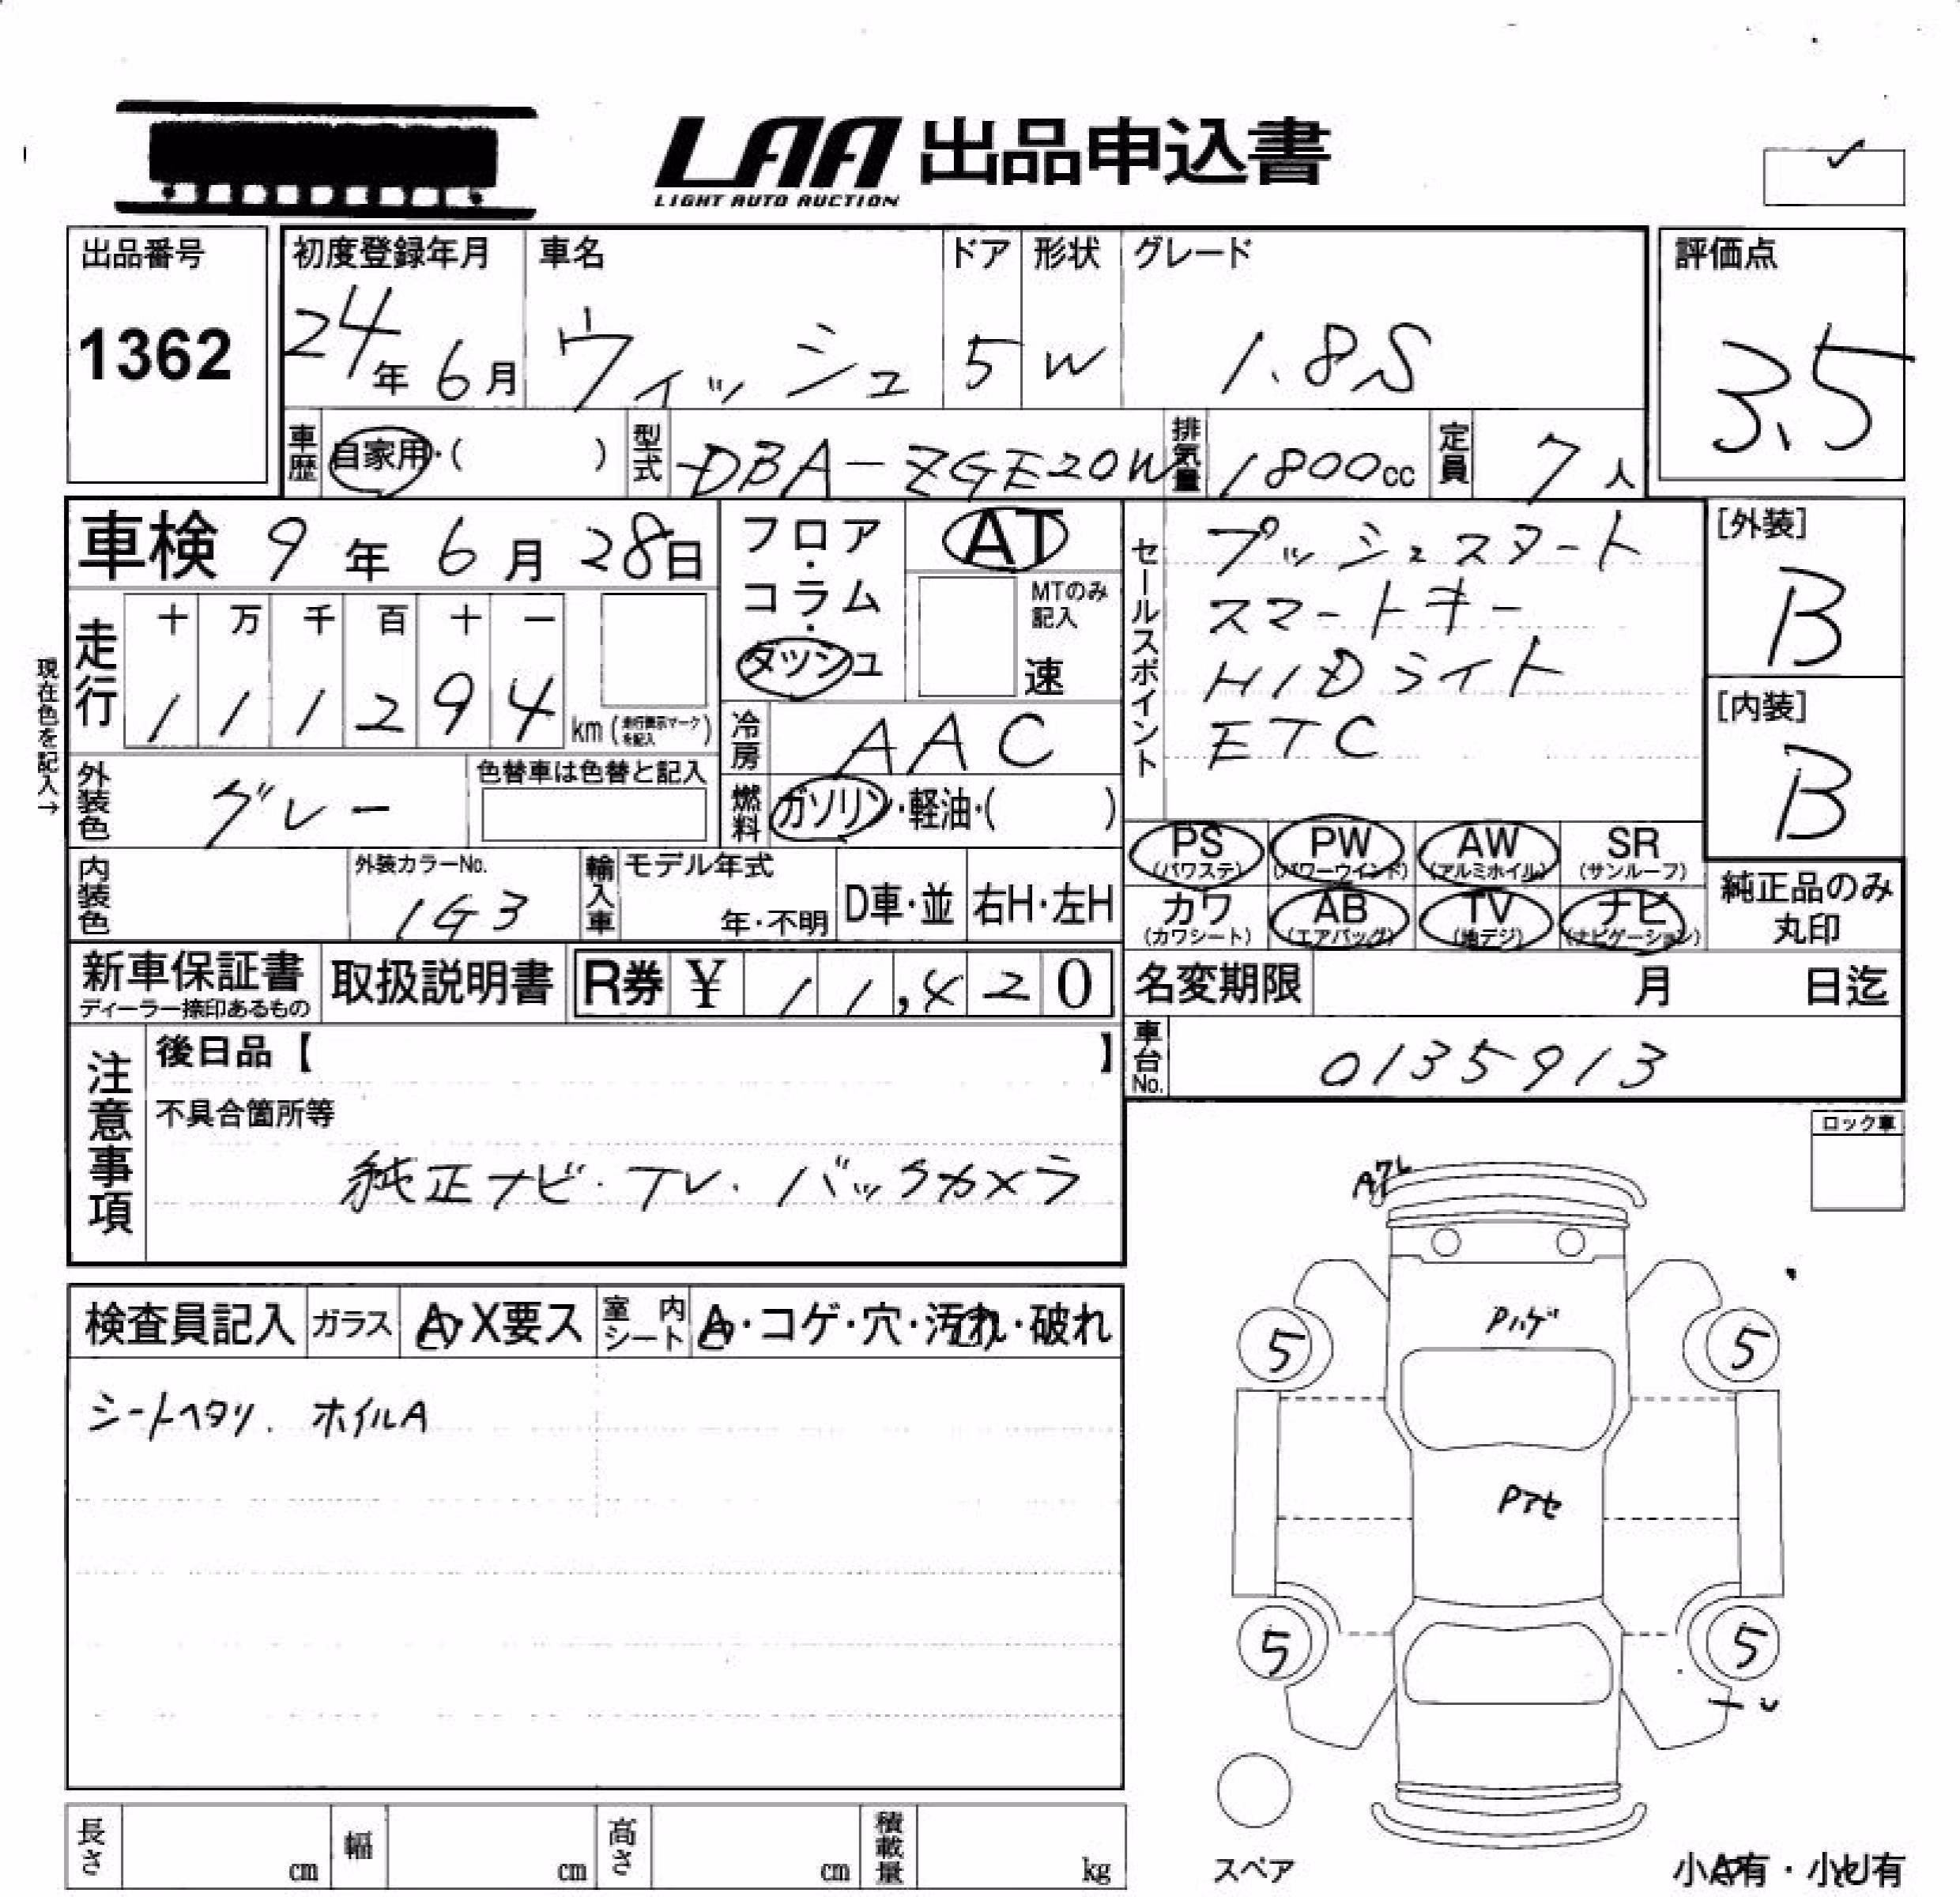 LAA 出品申込書
LIGHT AUTO AUCTION
出品番号
1362
初度登録年月
24年 6月
車名
ウィッシュ
ドア
5
形状
W
グレード
1.8S
評価点
3.5
車歴
自家用・( )
型式
DBA-ZGE20W
排気量
1800cc
定員
7人
車検 9年 6月 28日
走行
十 万 千 百 十 一
1 1 1 2 9 4
km (走行表示マークを記入)
現在色を記入→
フロア・
コラム・
ダッシュ
AT
MTのみ
記入
速
冷房
AAC
燃料
ガソリン・軽油・( )
外装色
グレー
色替車は色替と記入
内装色
外装カラーNo.
1G3
輸入車
モデル年式
年・不明
D車・並
右H・左H
セールスポイント
プッシュスタート
スマートキー
HIDライト
ETC
[外装]
B
[内装]
B
PS
(パワステ)
PW
(パワーウインド)
AW
(アルミホイル)
SR
(サンルーフ)
カワ
(カワシート)
AB
(エアバッグ)
TV
(地デジ)
ナビ
(ナビゲーション)
純正品のみ
丸印
新車保証書
ディーラー捺印あるもの
取扱説明書
R券 ¥ 11,420
名変期限
月 日迄
車台No.
0135913
注意事項
後日品【 】
不具合箇所等
純正ナビ・TV・バックカメラ
ロック車
検査員記入
ガラス
A・X要ス
室内シート
A・コゲ・穴・汚れ・破れ
シートヘタリ. ホイルA
Pハゲ
Pアセ
5
5
5
5
スペア
小A有・小U有
長さ
cm
幅
cm
高さ
cm
積載量
kg